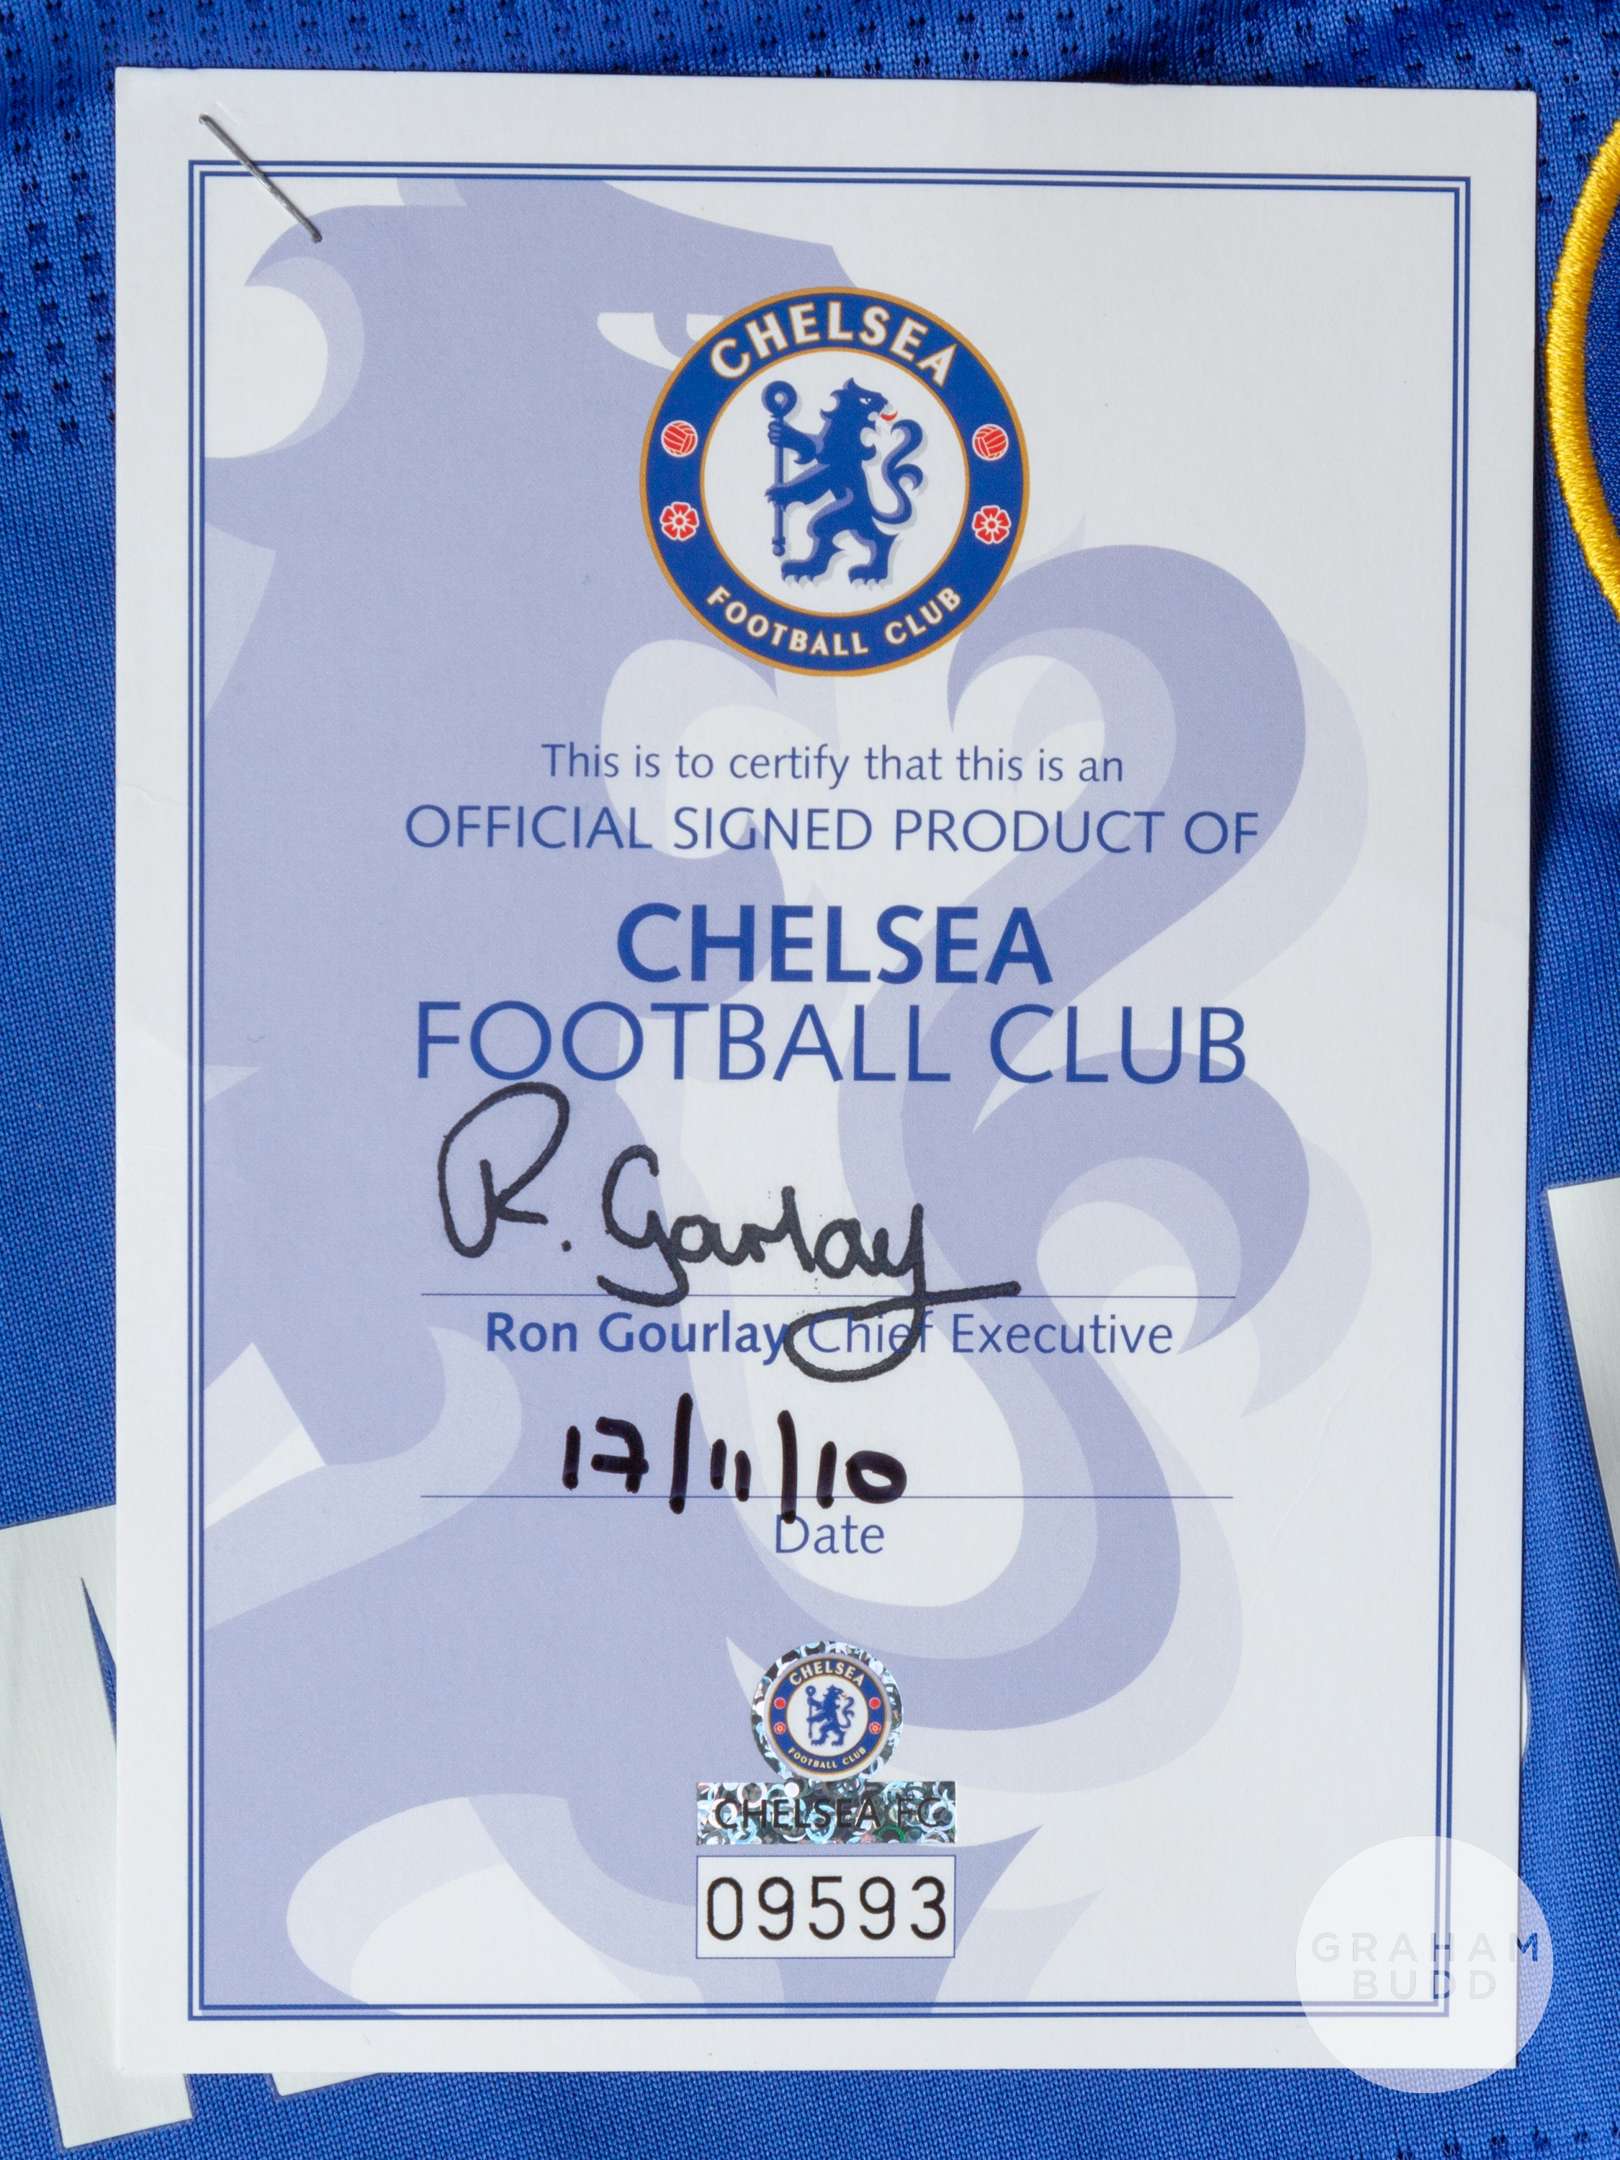 CHELSEA
FOOTBALL CLUB
This is to certify that this is an
OFFICIAL SIGNED PRODUCT OF
CHELSEA
FOOTBALL CLUB
R. Gourlay
Ron Gourlay Chief Executive
17/11/10
Date
CHELSEA
FOOTBALL CLUB
CHELSEA FC
09593
GRAHAM
BUDD